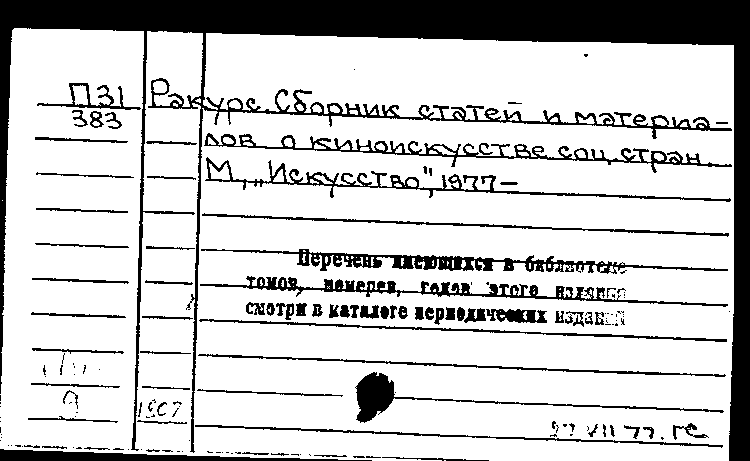 П31 Ракурс. Сборник статей и материа-
383
лов о киноискусстве соц. стран.
М., „Искусство", 1977 —
Перечень имеющихся в библиотеке
томов, номеров, годов этого издания
смотри в каталоге периодических изданий
9 1907
27 VII 77. ГС